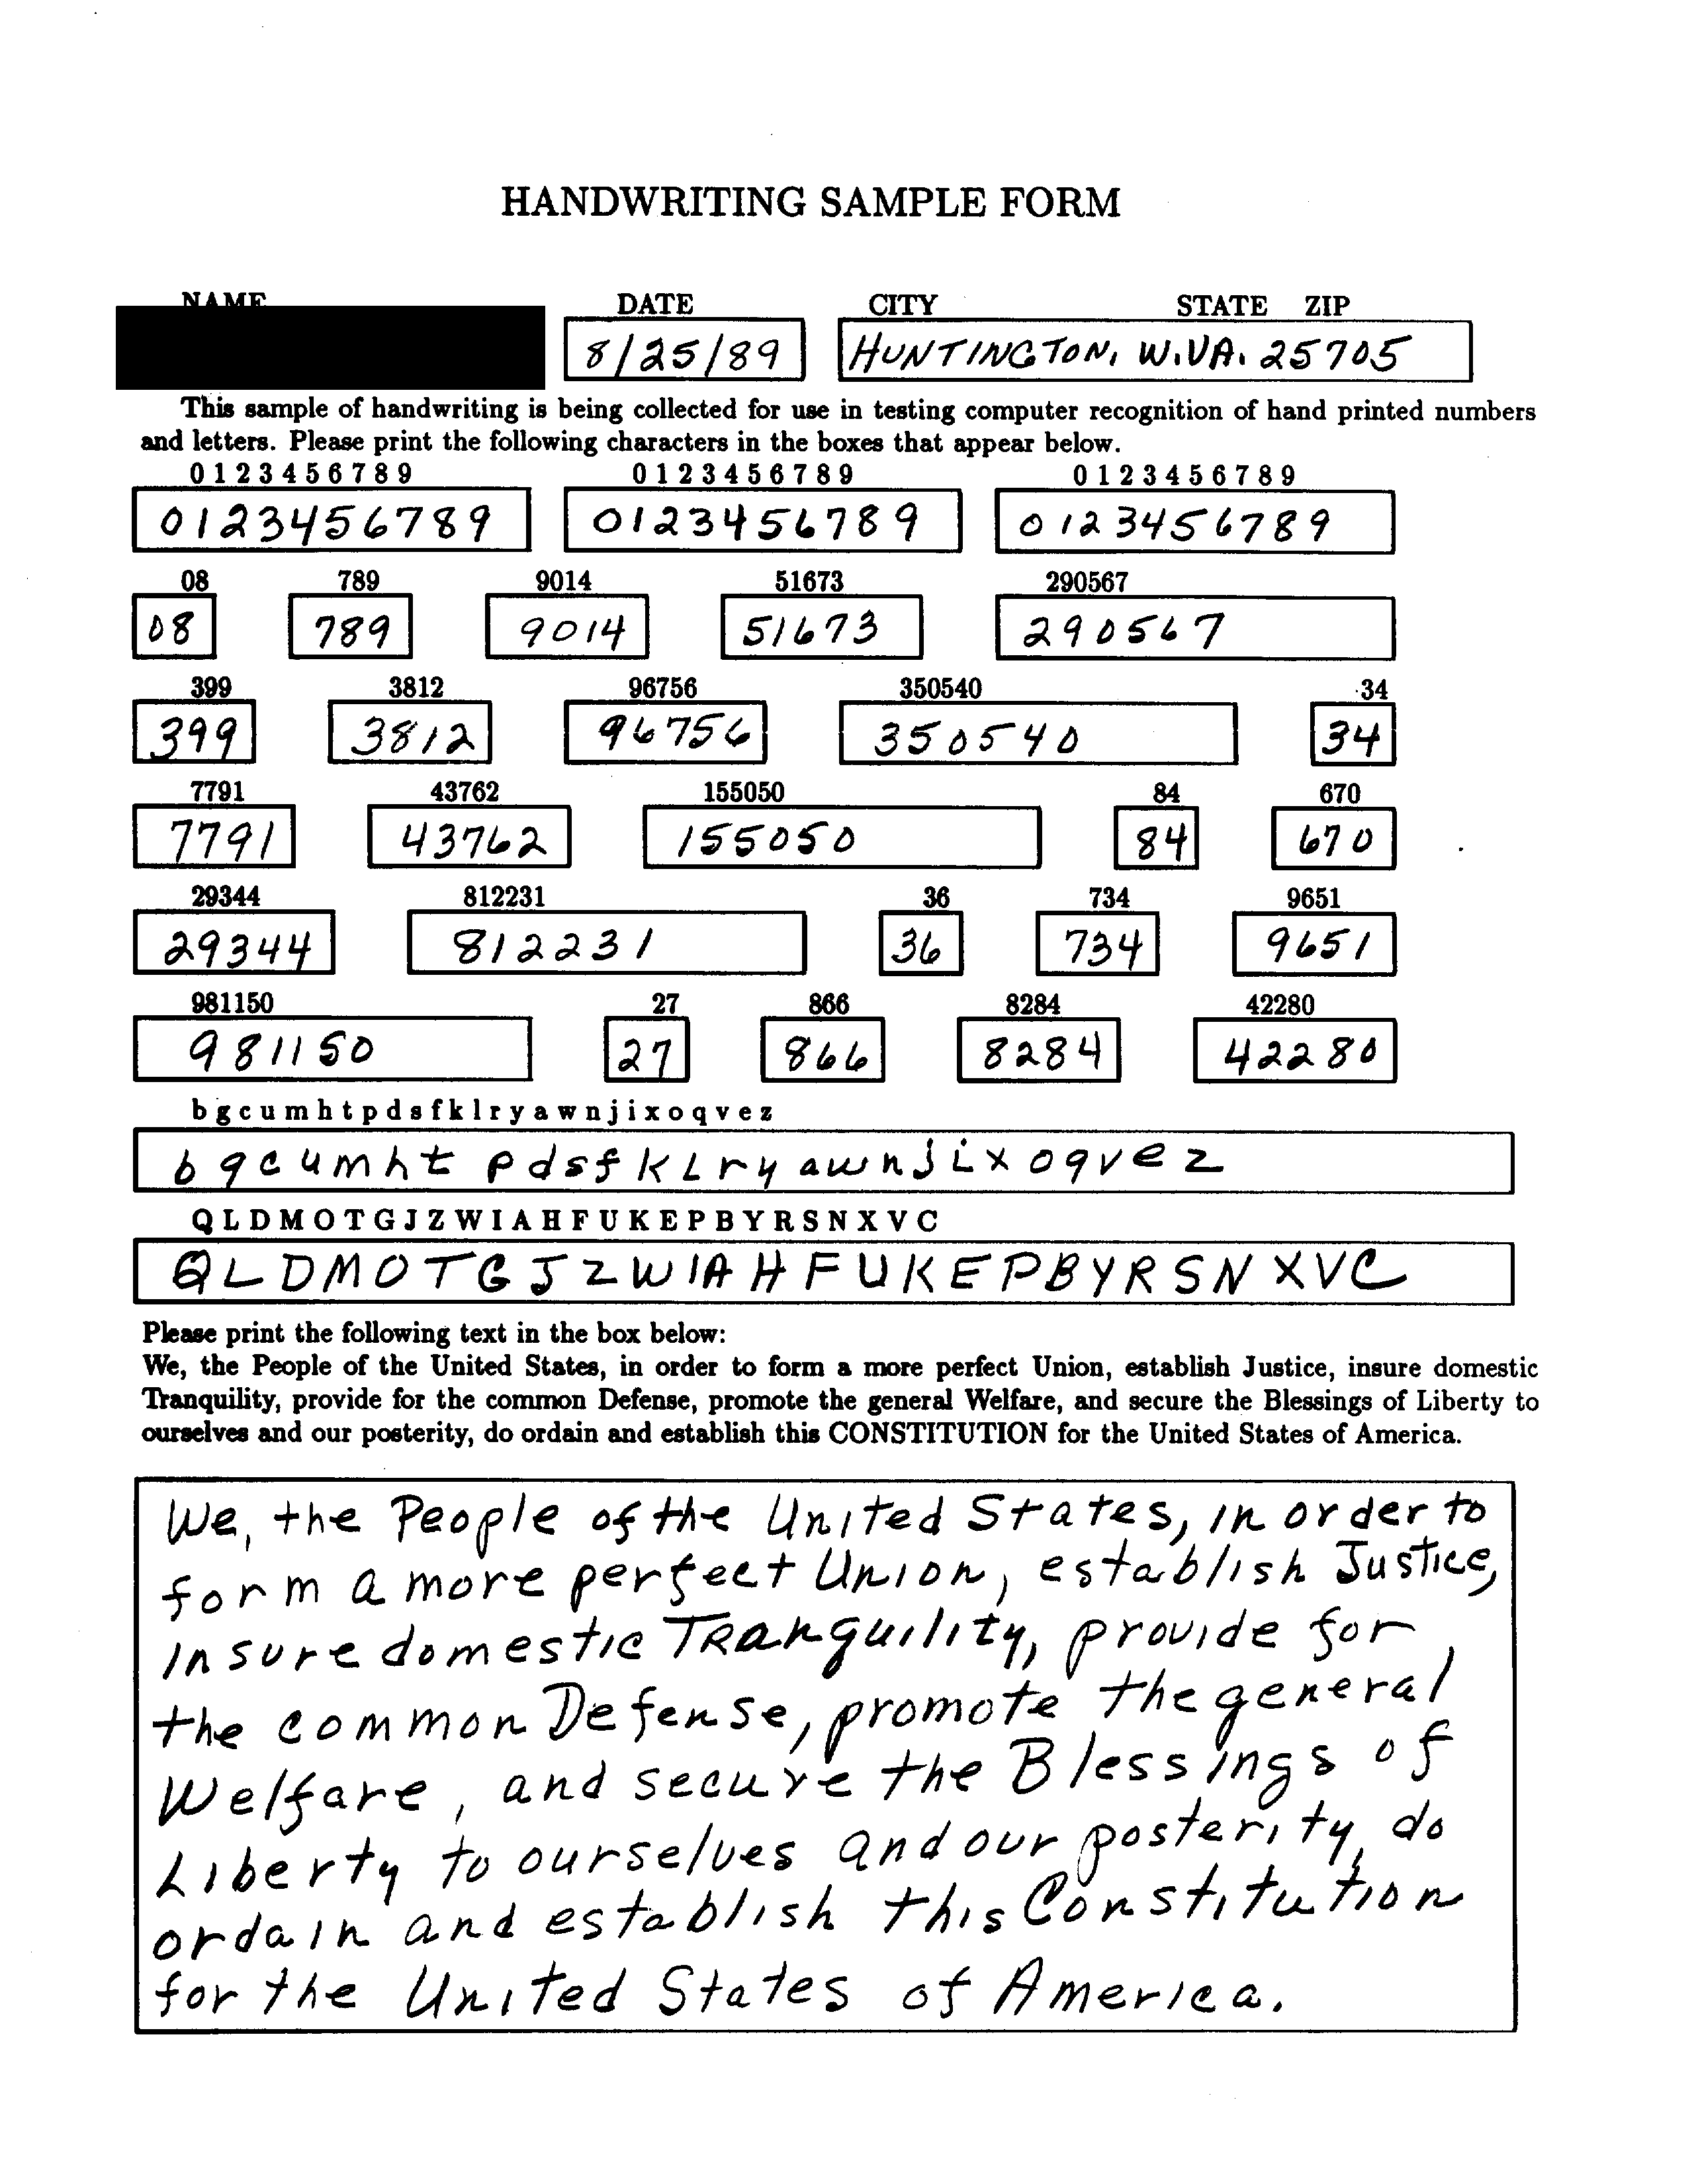 HANDWRITING SAMPLE FORM
NAME DATE CITY STATE ZIP
8/25/89 HUNTINGTON, W.VA. 25705
This sample of handwriting is being collected for use in testing computer recognition of hand printed numbers
and letters. Please print the following characters in the boxes that appear below.
0 1 2 3 4 5 6 7 8 9 0 1 2 3 4 5 6 7 8 9 0 1 2 3 4 5 6 7 8 9
0123456789 0123456789 0123456789
08 789 9014 51673 290567
08 789 9014 51673 290567
399 3812 96756 350540 34
399 3812 96756 350540 34
7791 43762 155050 84 670
7791 43762 155050 84 670
29344 812231 36 734 9651
29344 812231 36 734 9651
981150 27 866 8284 42280
981150 27 866 8284 42280
b g c u m h t p d s f k l r y a w n j i x o q v e z
b g c u m h t p d s f k L r y a w n j i x o q v e z
Q L D M O T G J Z W I A H F U K E P B Y R S N X V C
Q L D M O T G J Z W I A H F U K E P B Y R S N X V C
Please print the following text in the box below:
We, the People of the United States, in order to form a more perfect Union, establish Justice, insure domestic
Tranquility, provide for the common Defense, promote the general Welfare, and secure the Blessings of Liberty to
ourselves and our posterity, do ordain and establish this CONSTITUTION for the United States of America.
We, the People of the United States, in order to
form a more perfect Union, establish Justice,
insure domestic TRanquility, provide for
the common Defense, promote the general
Welfare, and secure the Blessings of
Liberty to ourselves and our posterity, do
ordain and establish this Constitution
for the United States of America.